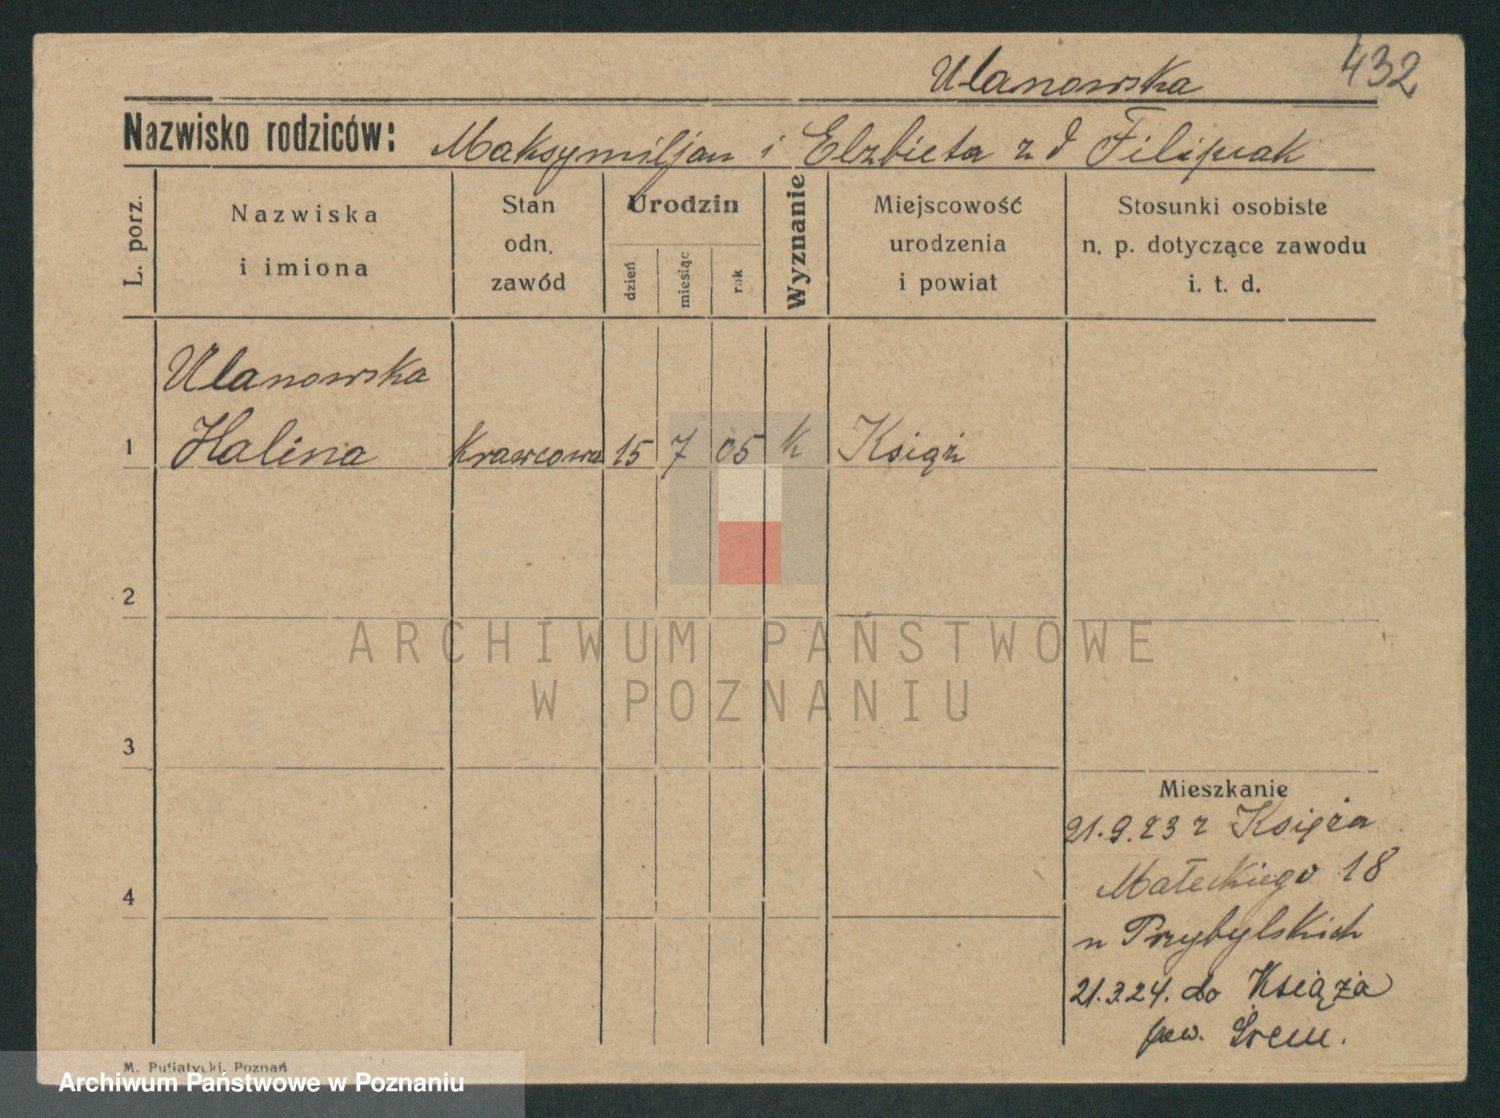 Ulanowska
432
Nazwisko rodziców: Maksymiljan i Elzbieta z d Filipiak
L. porz.
Nazwiska
i imiona
Stan
odn.
zawód
Urodzin
dzień
miesiąc
rok
Wyznanie
Miejscowość
urodzenia
i powiat
Stosunki osobiste
n. p. dotyczące zawodu
i. t. d.
Ulanowska
1 Halina Krawcowa 15 7 05 k Książ
2
ARCHIWUM PAŃSTWOWE
W POZNANIU
3
Mieszkanie
21.9.23 z Księża
Małeckiego 18
4
u Przybylskich
21.3.24. do Książa
pow. Śrem.
M. Putiatycki, Poznań
Archiwum Państwowe w Poznaniu